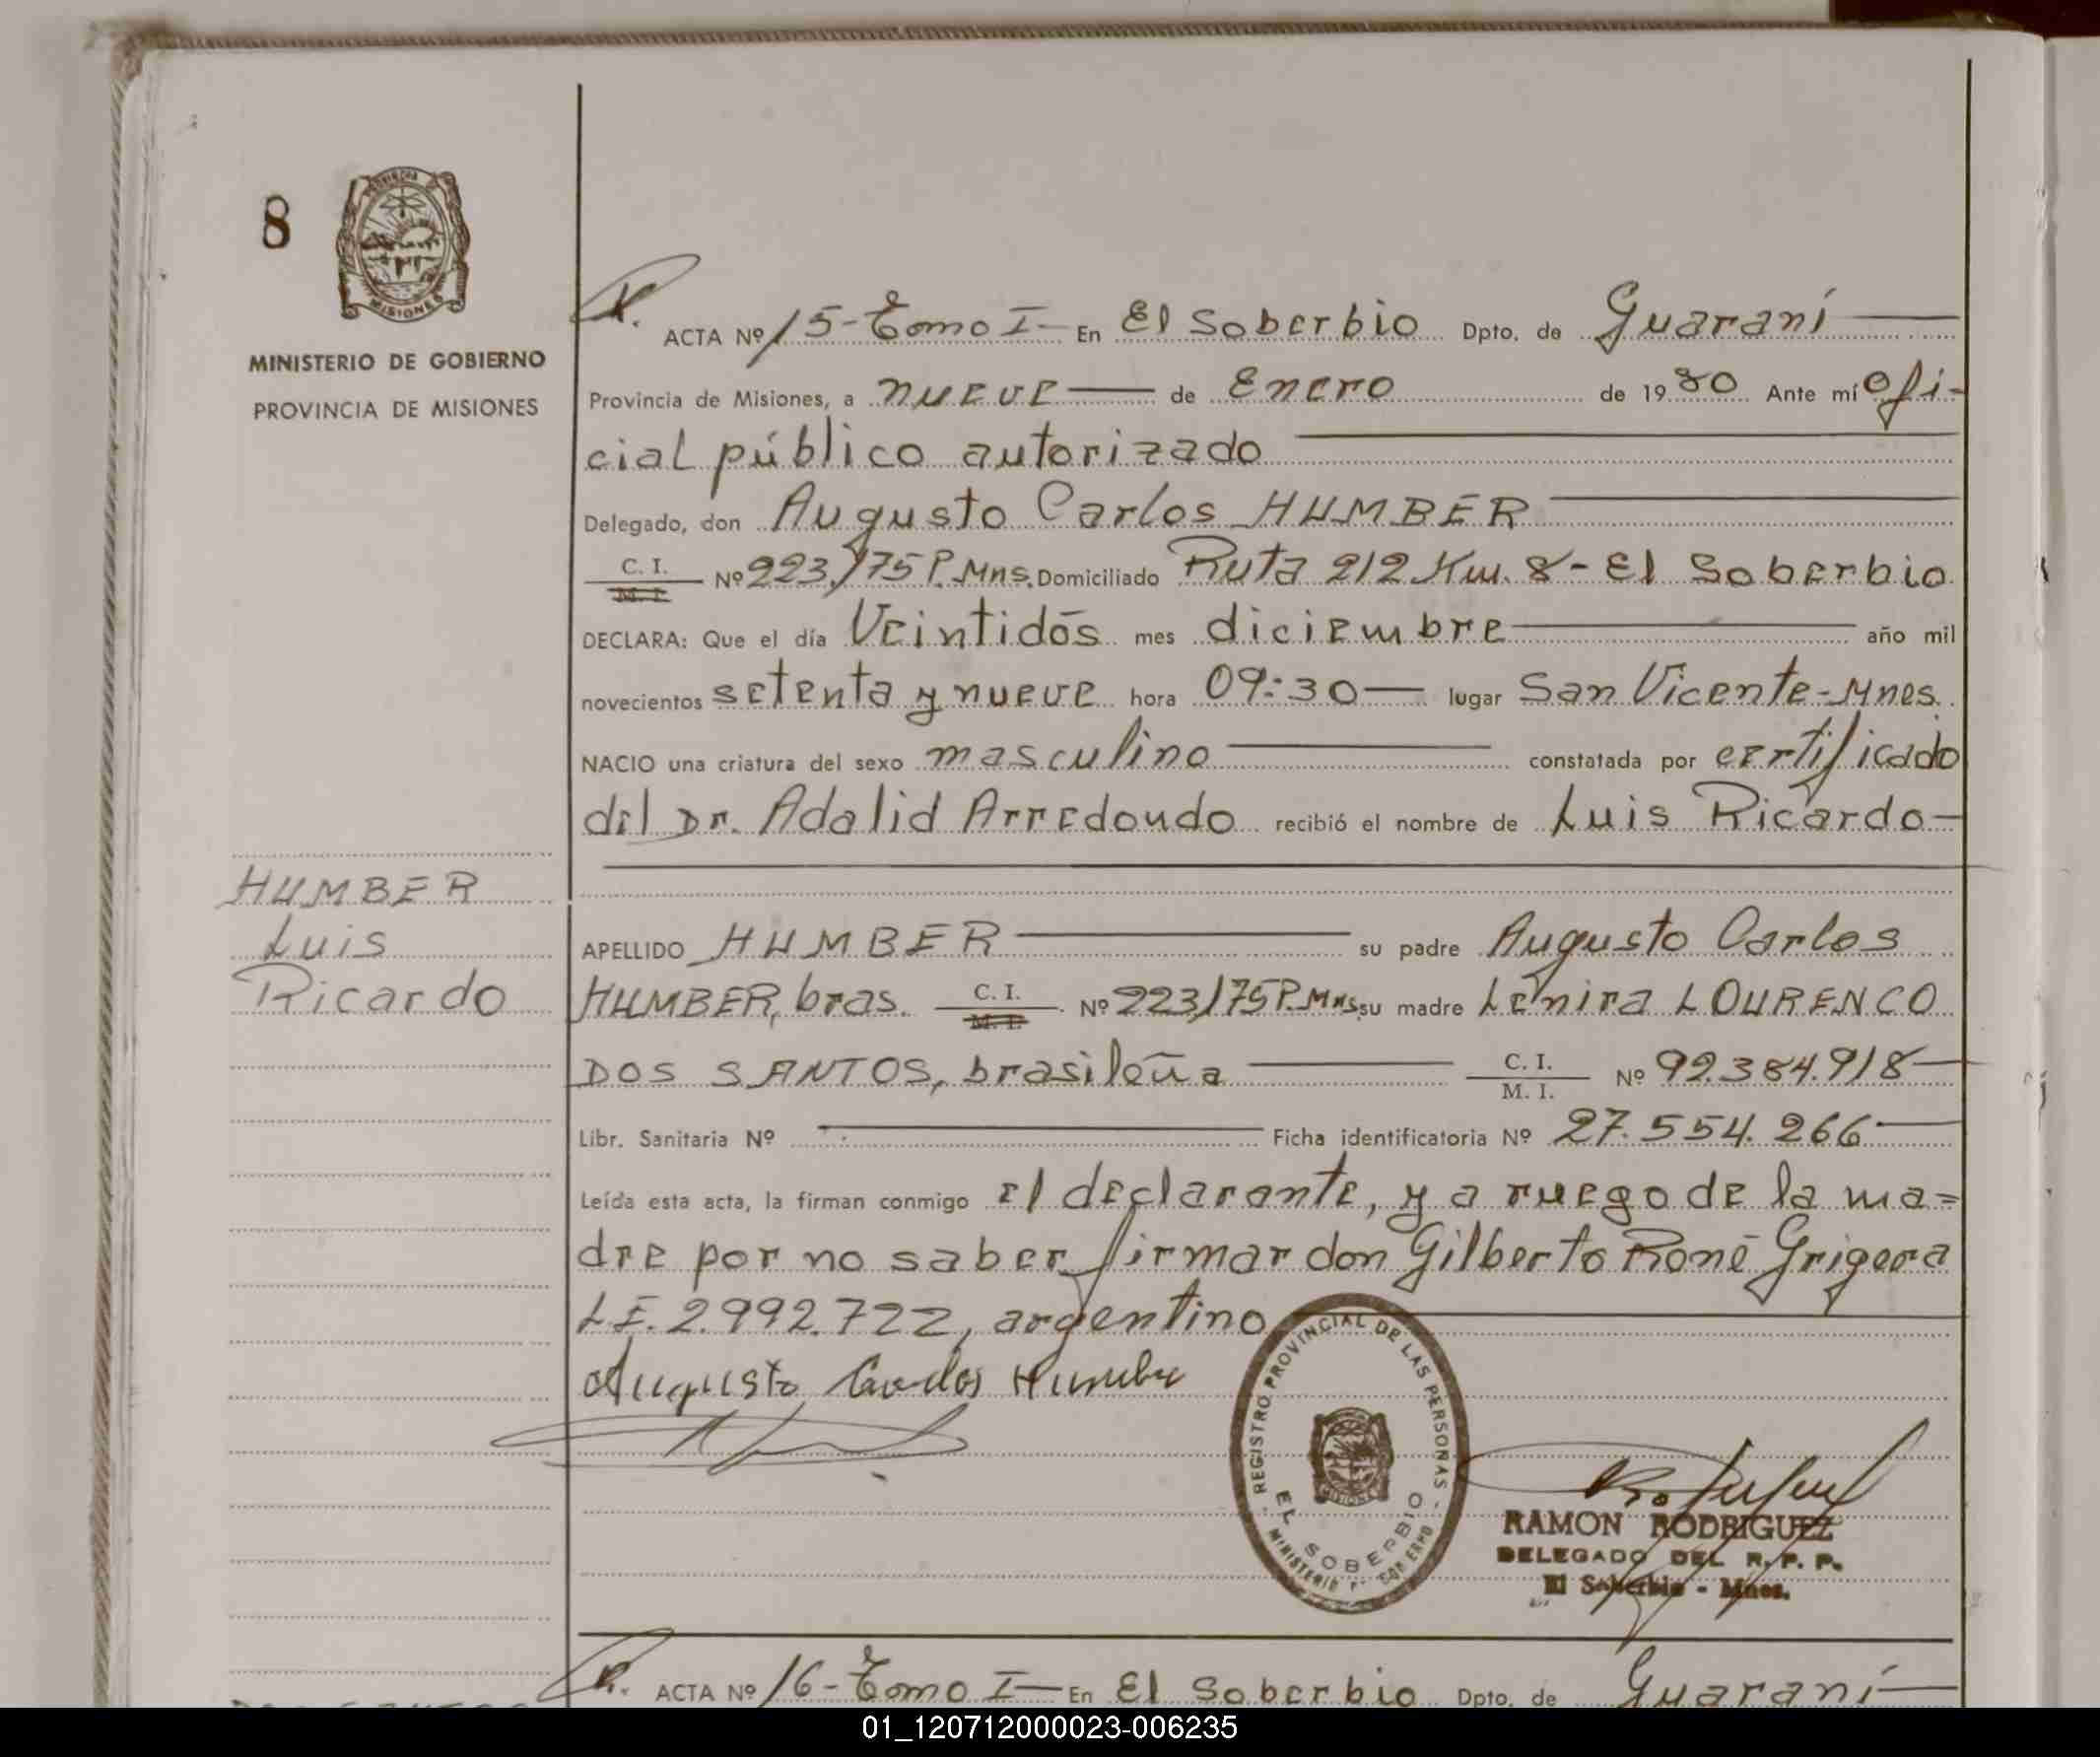 8
PROVINCIA
MISIONES
MINISTERIO DE GOBIERNO
PROVINCIA DE MISIONES
ACTA Nº 15- Tomo I- En El Soberbio Dpto. de Guaraní
Provincia de Misiones, a nueve de Enero de 1980 Ante mí ofi-
cial público autorizado
Delegado, don Augusto Carlos HUMBER
C. I.
M. I.
Nº 223/75 P. Mns. Domiciliado Ruta 212 Km. 8- El Soberbio
DECLARA: Que el día Veintidós mes diciembre año mil
novecientos setenta y nueve hora 09:30 lugar San Vicente-Mnes.
NACIO una criatura del sexo masculino constatada por certificado
del Dr. Adalid Arredondo recibió el nombre de Luis Ricardo-
HUMBER
Luis
Ricardo
APELLIDO HUMBER su padre Augusto Carlos
HUMBER, bras. C. I. M. I. Nº 223/75 P. Mns. su madre Lenira LOURENCO
DOS SANTOS, brasileña C. I. M. I. Nº 92.384.918
Libr. Sanitaria Nº Ficha identificatoria Nº 27.554.266
Leída esta acta, la firman conmigo el declarante, y a ruego de la ma=
dre por no saber firmar don Gilberto Roné Grigera
L.E. 2.992.722, argentino
Augusto Carlos Humber
REGISTRO PROVINCIAL DE LAS PERSONAS
EL SOBERBIO
MISIONES
RAMON RODRIGUEZ
DELEGADO DEL R. P. P.
El Soberbio - Mnes.
ACTA Nº 16- Tomo I- En El Soberbio Dpto. de Guaraní
01_120712000023-006235